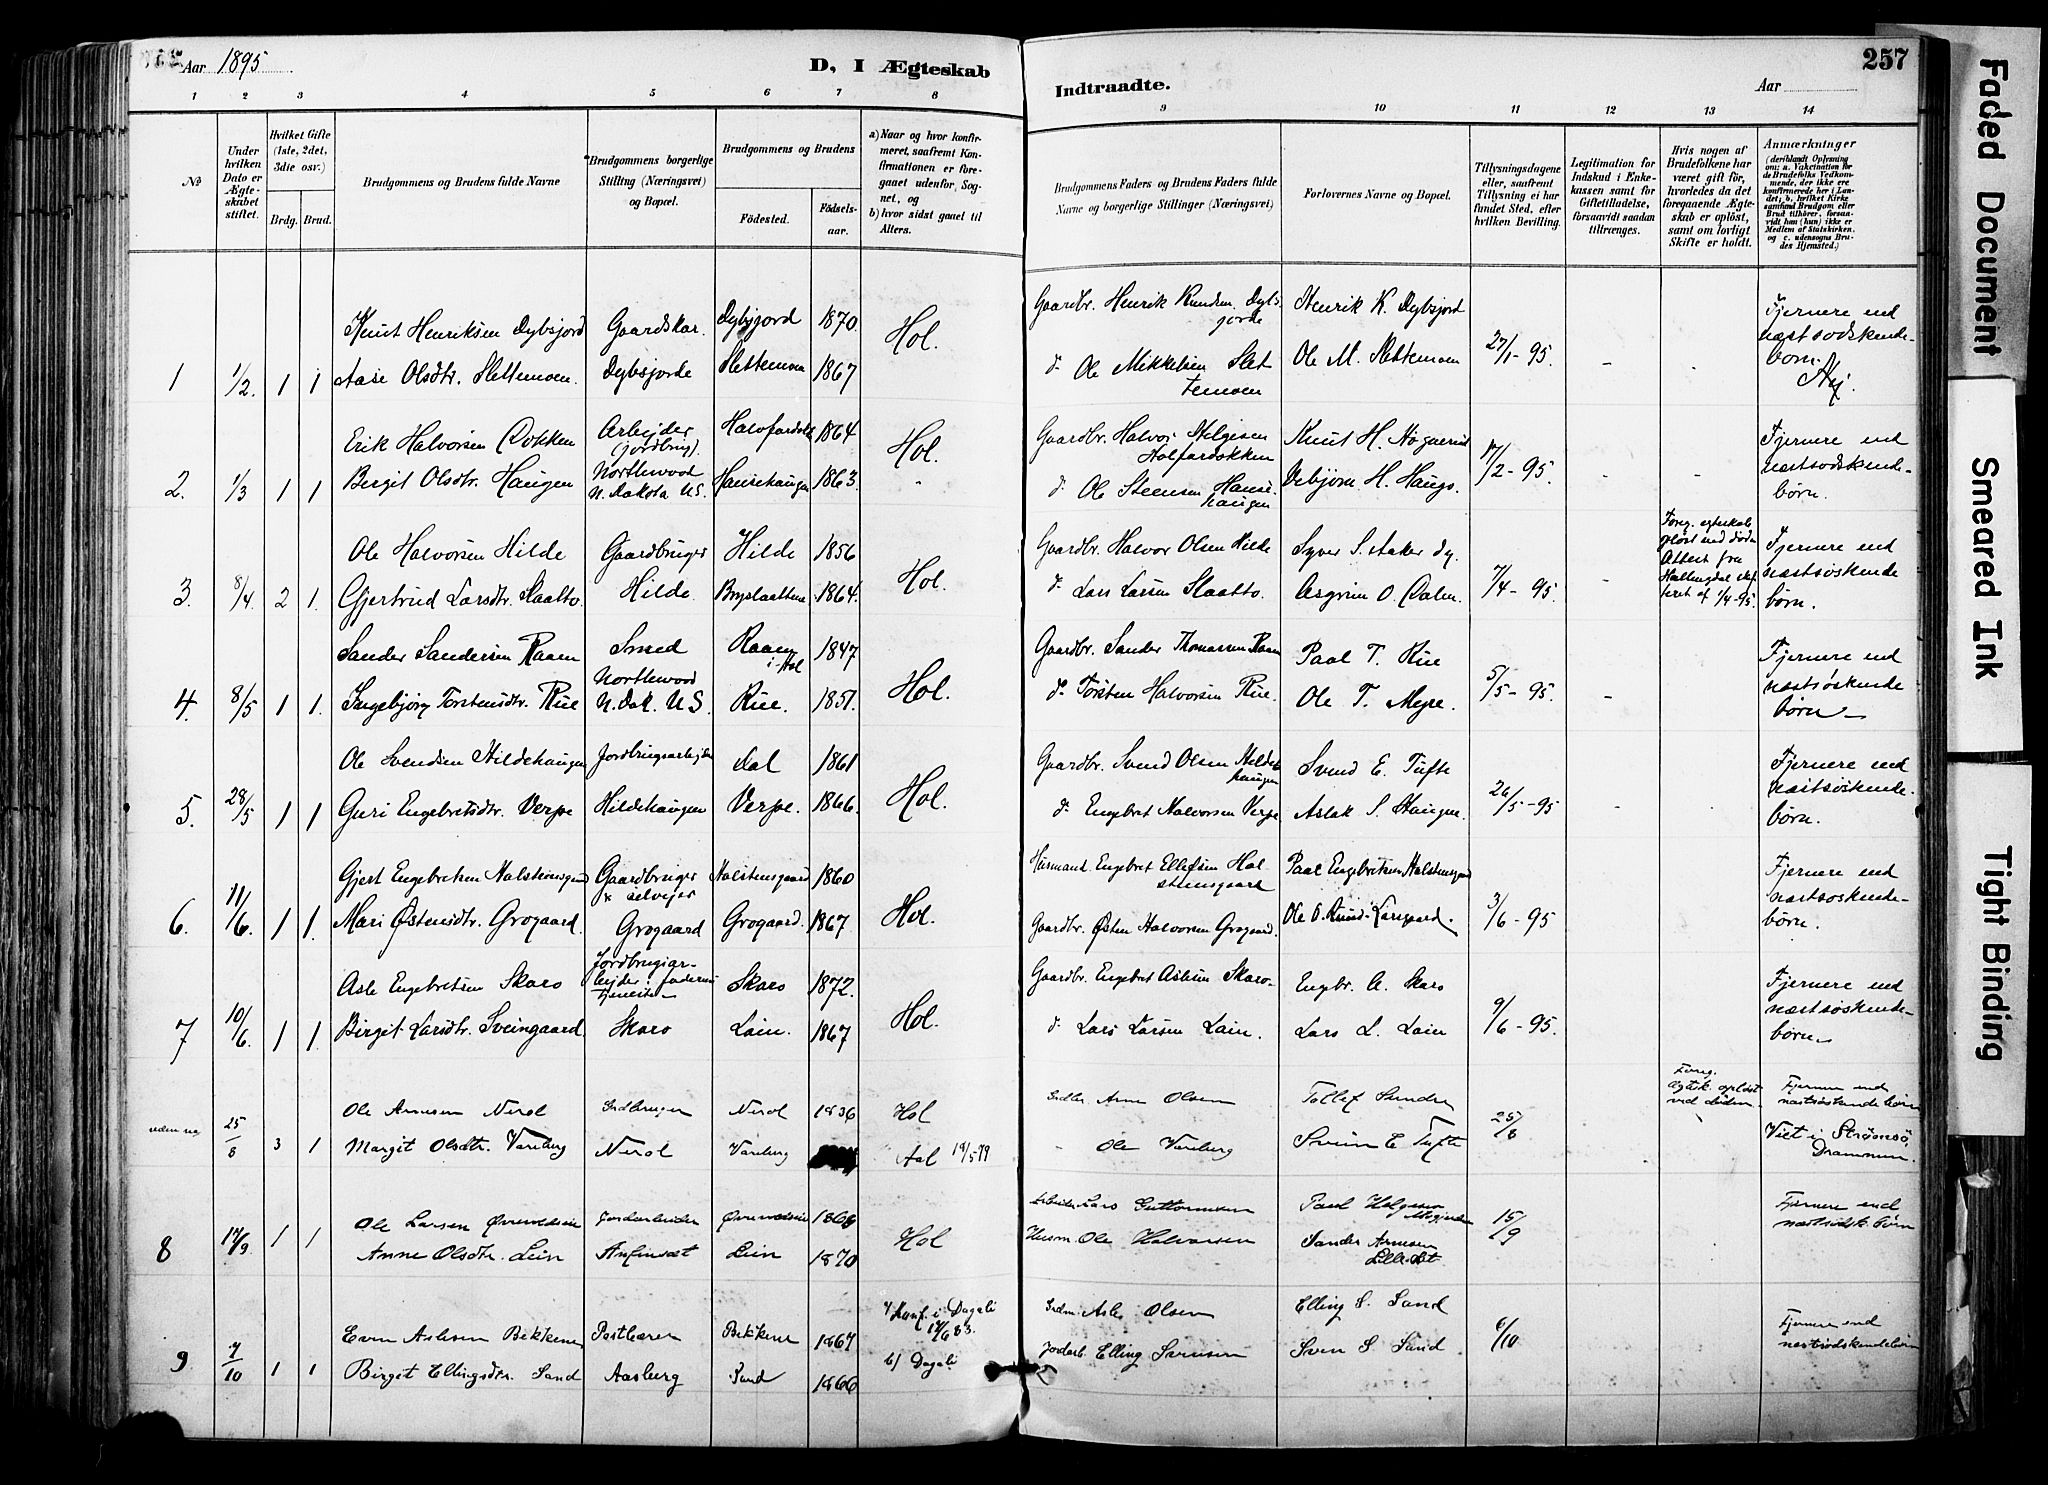 Aar 1895
D, I Ægteskab
Indtraadte.
Aar
257
1 2 3 4 5 6 7 8 9 10 11 12 13 14
No
Under hvilken Dato er Ægteskabet stiftet.
Hvilket Gifte (1ste, 2det, 3die osv.)
Brdg. Brud.
Brudgommens og Brudens fulde Navne
Brudgommens borgerlige Stilling (Næringsvei) og Bopæl.
Brudgommens og Brudens
Fødested.
Fødselsaar.
a) Naar og hvor konfirmeret, saafremt Konfirmationen er foregaaet udenfor, Sognet, og
b) hvor sidst gaaet til Alters.
Brudgommens Faders og Brudens Faders fulde Navne og borgerlige Stillinger (Næringsvei)
Forlovernes Navne og Bopæl.
Tillysningsdagene eller, saafremt Tillysning ei har fundet Sted, efter hvilken Bevilling.
Legitimation for Indskud i Enkekassen samt for Giftetilladelse, forsaavidt saadan tiltrænges.
Hvis nogen af Brudefolkene har været gift før, hvorledes da det foregaaende Ægteskab er opløst, samt om lovligt Skifte er holdt.
Anmærkninger
(deriblandt Oplysning om: a. Vakcination for de Brudefolks Vedkommende, der ikke ere konfirmerede her i Landet; b. hvilket Kirkesamfund Brudgom eller Brud tilhører, forsaavidt han (hun) ikke er Medlem af Statskirken, og c. udensogns Brudes Hjemsted.)
Knut Henriksen Dybsjord Gaardskar. Dybsjord 1870. Hol. Gaardbr. Henrik Knudsen Dybsjorde Henrik K. Dybsjord 27/1-95. Fjernere end næstsødskendebørn. Nej.
1 1/2. 1 1 Aase Olsdtr. Slettemoen. Dybsjorde Slettemoen 1867 d° Ole Mikkelsen Slettemoen Ole M. Slettemoen
Erik Halvorsen Arbejder (jordbrug). 1864 Hol. Gaardbr. Halvor Helgesen Knut H. 17/2-95. Fjernere end næstsødskendebørn.
2. 1/3 1 1 Birgit Olsdtr. Haugen Northwood N. Dakota U.S. Hansehaugen 1863. d° Ole Steensen Hansehaugen H. Haugs.
Ole Halvorsen Hilde Gaardbruger Hilde 1856 Hol. Gaardbr. Halvor Olsen Hilde Syver S. 7/4-95. Foreg. egteskab opløst ved død. Attest fra Hallingdal skifteret af 1/4-95. Fjernere end næstsøskendebørn.
3. 8/4. 2 1. Gjertrud Larsdtr. Slaatto. Hilde. 1864. d° Lars Larsen Slaatto. Asgrim O.
Sander Sandersen Raaen Smed Raaen i Hol 1847 Hol. Gaardbr. Sander Thomassen Raaen Paal T. Rue 5/5-95. Fjernere end næstsøskendebørn
4. 8/5 1 1. Ingebjørg Torstensdtr. Rue Northwood N. Dak. U.S. Rue. 1851. d° Torsten Halvorsen Rue. Ole T. Myre.
Ole Svendsen Hildehaugen Jordbrugsarbejder Aal 1861 Hol. Gaardbr. Svend Olsen Hildehaugen Svend E. Tufte 26/5-95 Fjernere end næstsøskendebørn.
5. 28/5 1 1 Guri Engebretsdtr. Verpe Hildehaugen Verpe. 1866. d° Engebret Halvorsen Verpe Aslak S. Haugen.
Gjert Engebretsen Halstensgaard Gaardbruger & selvejer Halstensgaard 1860 Hol. Husmand Engebret Ellefsen Halstensgaard Paal Engebretsen Halstensgaard 3/6-95 Fjernere end næstsøskendebørn.
6. 11/6. 1 1. Mari Østensdtr. Grøgaard. Grøgaard Grøgaard. 1867. Gaardbr. Østen Halvorsen Grøgaard.
Asle Engebretsen Skaro Jordbrugsarbejder i faderens tjeneste Skaro 1872. Hol. Gaardbr. Engebret Aslesen Skaro Engbr. A. Skaro 9/6-95. Fjernere end næstsøskendebørn.
7 10/6. 1 1. Birgit Larsdtr. Sveingaard. Skaro Lain. 1867 d° Lars Larsen Lain. Lars L. Lain
Ole Arnesen Nerol Grdbruger Nerol 1836 Hol Grdbr. Arne Olsen Tollef Sundre 25/8 Foreg. ægtsk. opløst ved døden. Fjernere end næstsøskendebørn
25/8 3 1 Margit Olsdtr. Vareberg Nerol Vareberg Aal 19/5-79 Ole Vareberg Svein E. Tufte Viet i Strømsø, Drammen.
Ole Larsen 1868 Hol Lars Guttormsen Paul Helgesen 15/9 Fjernere end næstsødsk.børn
8 17/9. 1 1 Anne Olsdtr. Lein Anfinsæt Lein 1870 Husm. Ole Halvorsen Sander Arnesen
Even Aslesen Bekkene Postbærer Bekkene 1864 a/ Konf. i Dagali 17/6 83. Grdm. Asle Olsen Elling S. Sand 6/10 Fjernere end næstsødskendebørn
9. 7/10 1 1 Birgit Ellingsdtr. Sand Aasberg Sand 1866 b/ Dagali Jordarb. Elling Svensen Sven S. Sand
Faded Document
Smeared Ink
Tight Binding